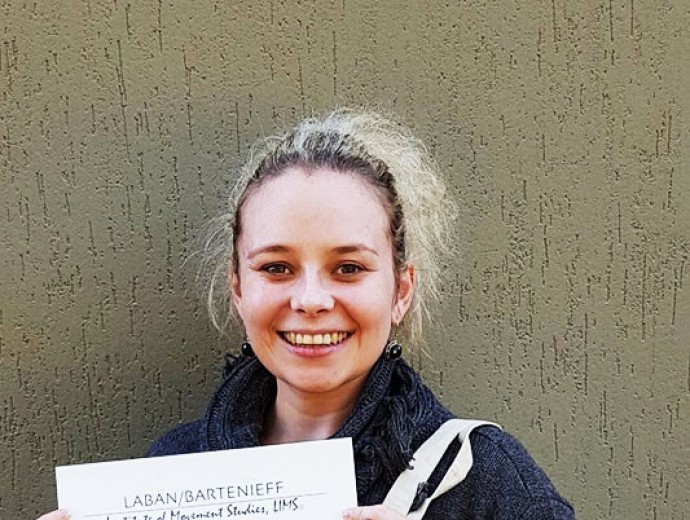 LABAN/BARTENIEFF
Institute of Movement Studies, LIMS